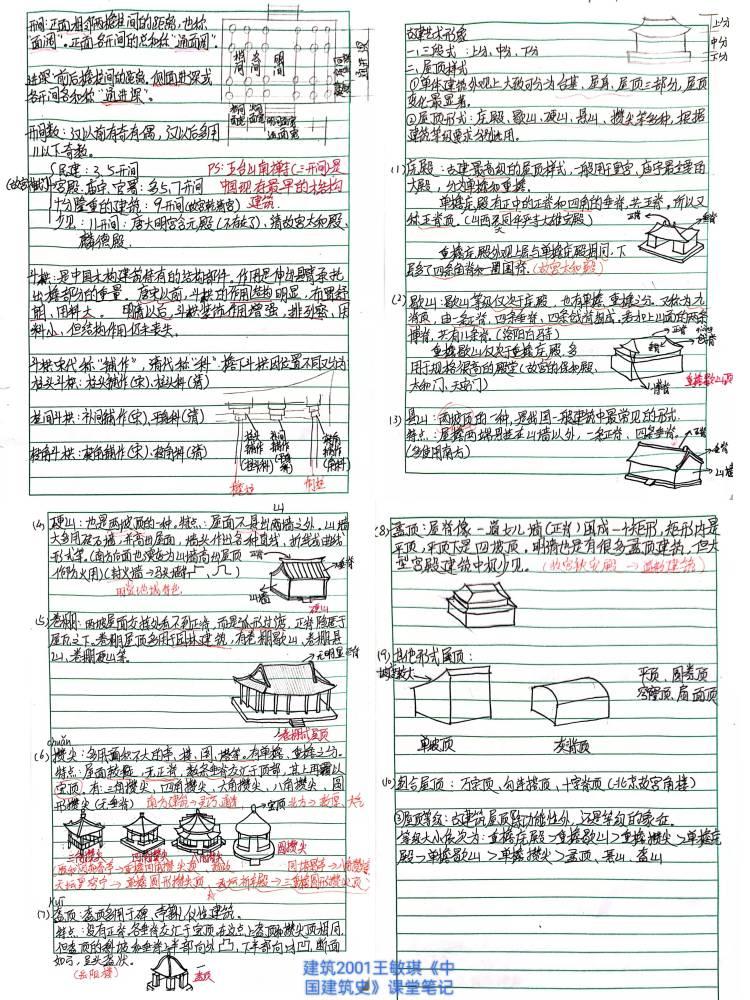 开间:正面相邻两檐柱间的距离,也称
"面阔"。正面各开间的总和称"通面阔"。
进深:前后檐柱间的距离,侧面进深或
各开间总和称"通进深"。
开间数:汉以前有奇有偶,汉以后多用
11以下奇数。
民建:3、5开间
宫殿、庙宇、官署:多5、7开间
十分隆重的建筑:9开间
少见:11开间:唐大明宫含元殿(不存了),清故宫太和殿、
麟德殿。
PS:五台山南禅寺(三开间)是
中国现存最早的木结构
建筑
梢间
次间
明间
斗栱:是中国木构建筑特有的结构部件。作用是伸出悬臂承托
出檐部分的重量。唐宋以前,斗栱的作用结构明显,布置舒
朗,用料大。明清以后,斗栱装饰作用增强,排列密,用
料小,但结构作用仍未丧失。
斗栱宋代称"铺作",清代称"科"。檐下斗栱因位置不同又分为
柱头斗栱:柱头铺作(宋)、柱头科(清)
柱间斗栱:补间铺作(宋)、平身科(清)
转角斗栱:转角铺作(宋)、角科(清)
古建艺术形象
一、三段式:上分、中分、下分
上分
中分
下分
二、屋顶样式
①单体建筑外观上大致可分为台基、屋身、屋顶三部分,屋顶
变化最显著。
②屋顶形式:庑殿、歇山、硬山、悬山、攒尖等多种,根据
建筑等级要求分别选用。
(1)庑殿:古建最高级的屋顶样式,一般用于皇宫、庙宇最主要的
大殿,分为单檐和重檐。
单檐庑殿有正中的正脊和四角的垂脊,共五脊,所以又
称五脊顶。(山西大同华严寺大雄宝殿)
正脊
垂脊
重檐庑殿外观上层与单檐庑殿相同,下
层多了四条角脊和一圈围脊。(故宫太和殿)
(2)歇山:歇山等级仅次于庑殿,也有单檐、重檐之分。又称为九
脊顶,由一条正脊,四条垂脊,四条戗脊组成。若加上山面的两条
博脊,共有11条脊。(洛阳白马寺)
重檐歇山仅次于重檐庑殿,多
用于规格很高的殿堂(故宫的保和殿、
太和门、天安门)
正脊
戗脊
博脊
重檐歇山顶
(3)悬山:两坡顶的一种,是我国一般建筑中最常见的形式。
特点:屋檐两端悬出在山墙以外,一条正脊、四条垂脊。
(多使用南方)
正脊
垂脊
山墙
(4)硬山:也是两坡顶的一种。特点:屋面不悬出两墙之外,山墙
大多用砖石墙,并高出屋面,墙头作出各种直线、折线或曲线
形式等。(南方方面也演变为山墙高出屋顶
作防火用)(封火墙→马头墙)
明显地域特色
山墙
垂脊
硬山
(5)卷棚:两坡屋面交接处有不明正脊,而是弧形过渡,正脊隐藏于
屋瓦之下。卷棚屋顶多用于园林建筑,有卷棚歇山、卷棚悬
山、卷棚硬山等。
无明显正脊
卷棚式屋顶
cuán
(6)攒尖:多用面积不大的亭、楼、阁、塔等。有单檐、重檐之分。
特点:屋面较陡,无正脊,数条垂脊交汇于顶部,其上再覆以
宝顶。有三角攒尖、四角攒尖、六角攒尖、八角攒尖、圆
形攒尖(无垂脊)
宝顶
三角攒尖
四角攒尖
八角攒尖
圆攒尖
天坛皇穹宇→单檐圆形攒尖顶
天坛祈年殿→三重檐圆形攒尖顶
kuī
(7)盔顶:盔顶多用于碑、亭等礼仪性建筑。
特点:没有正脊,各垂脊交汇于宝顶。在这点上盔顶和攒尖顶相同,
但盔顶的斜坡和垂脊上半部向外凸,下半部向内凹,断面
如弓,呈头盔状。
(岳阳楼)
盔顶
(8)盝顶:屋脊像一道女儿墙(正脊)围成一个矩形,矩形内是
平顶,平顶下是四坡顶,明清也是有很多盝顶建筑,但大
型宫殿建筑中很少见。
(9)其他形式屋顶:
坡度较大
单坡顶
灰背顶
平顶、囤顶
穹窿顶、扇面顶
(10)组合屋顶:万字顶、勾连搭顶、十字脊顶(北京故宫角楼)
③屋顶等级:古建筑屋顶除功能性外,还是等级的象征。
等级大小依次为:重檐庑殿>重檐歇山>重檐攒尖>单檐庑
殿>单檐歇山>单檐攒尖>盝顶、悬山、硬山
建筑2001王敏琪《中
国建筑史》课堂笔记